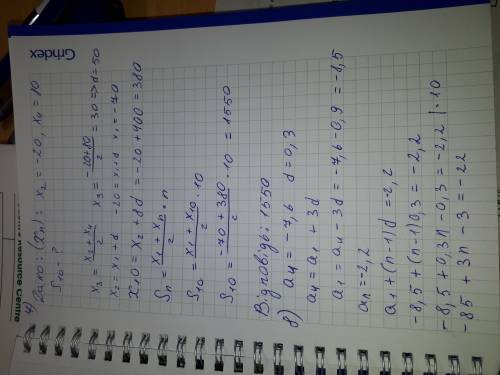 Grindex
Resource Centre
4) Дано: (xn): x2 = -20, x4 = 10
S10 - ?
x3 = (x2 + x4)/2 x3 = (-20+10)/2 = 30 => d = 50
x2 = x1 + d -20 = x1 + d x1 = -70
x10 = x2 + 8d = -20 + 400 = 380
Sn = (x1 + xn)/2 · n
S10 = (x1 + x10)/2 · 10
S10 = (-70 + 380)/2 · 10 = 1550
Відповідь: 1550
8) a4 = -7,6 d = 0,3
a4 = a1 + 3d
a1 = a4 - 3d = -7,6 - 0,9 = -8,5
an = -2,2
a1 + (n-1)d = -2,2
-8,5 + (n-1)0,3 = -2,2
-8,5 + 0,3n - 0,3 = -2,2 | · 10
-85 + 3n - 3 = -22